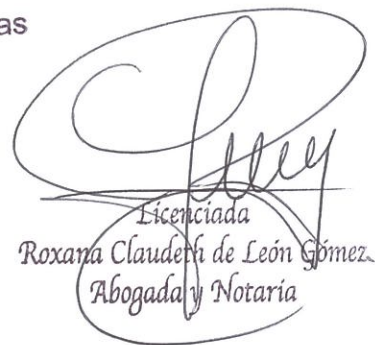 as
Licenciada
Roxana Claudeth de León Gómez
Abogada y Notaria